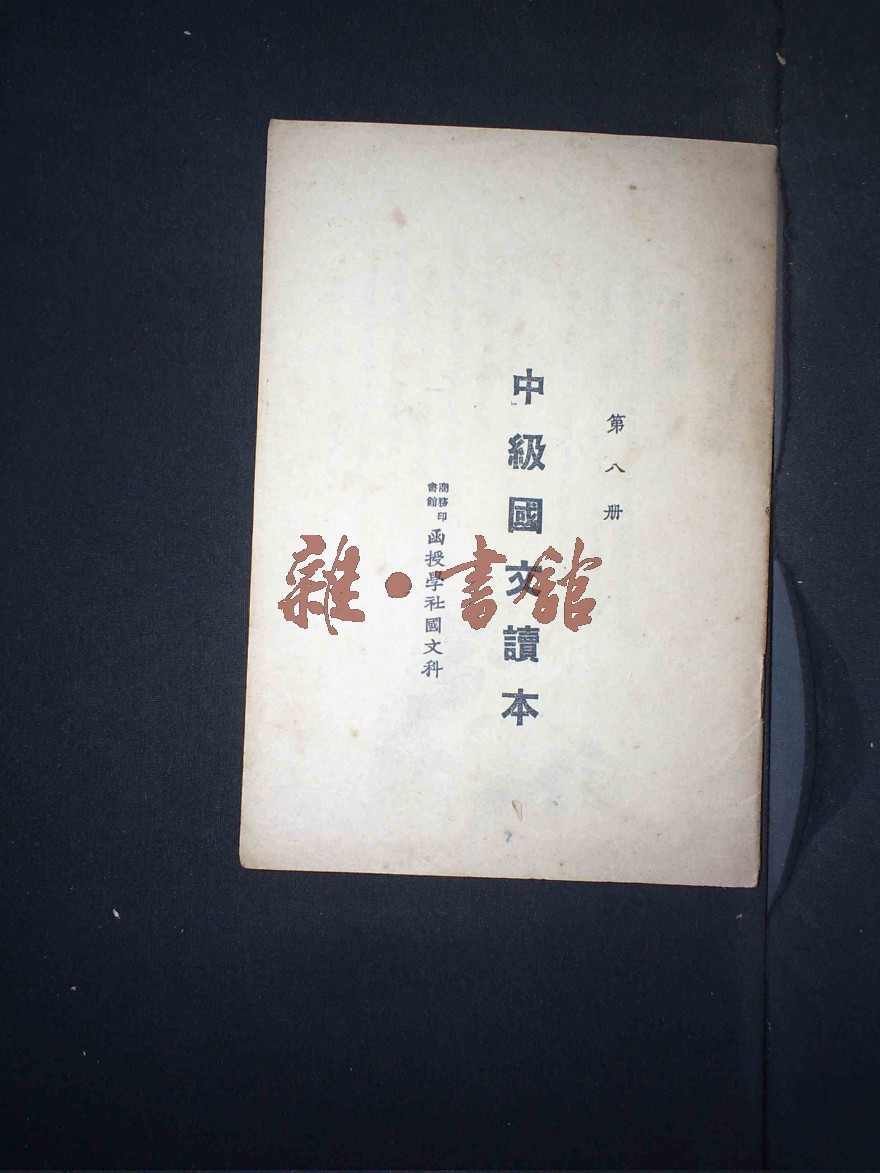 第八册
中級國文讀本
商務印書館
函授學社國文科
雜·書館